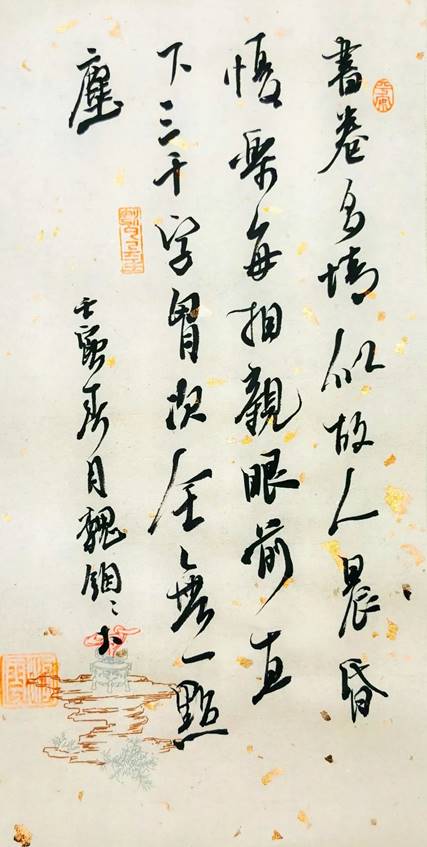 書卷多情似故人晨昏
憂樂每相親眼前直
下三千字胷次全無一點
塵
壬寅春月魏